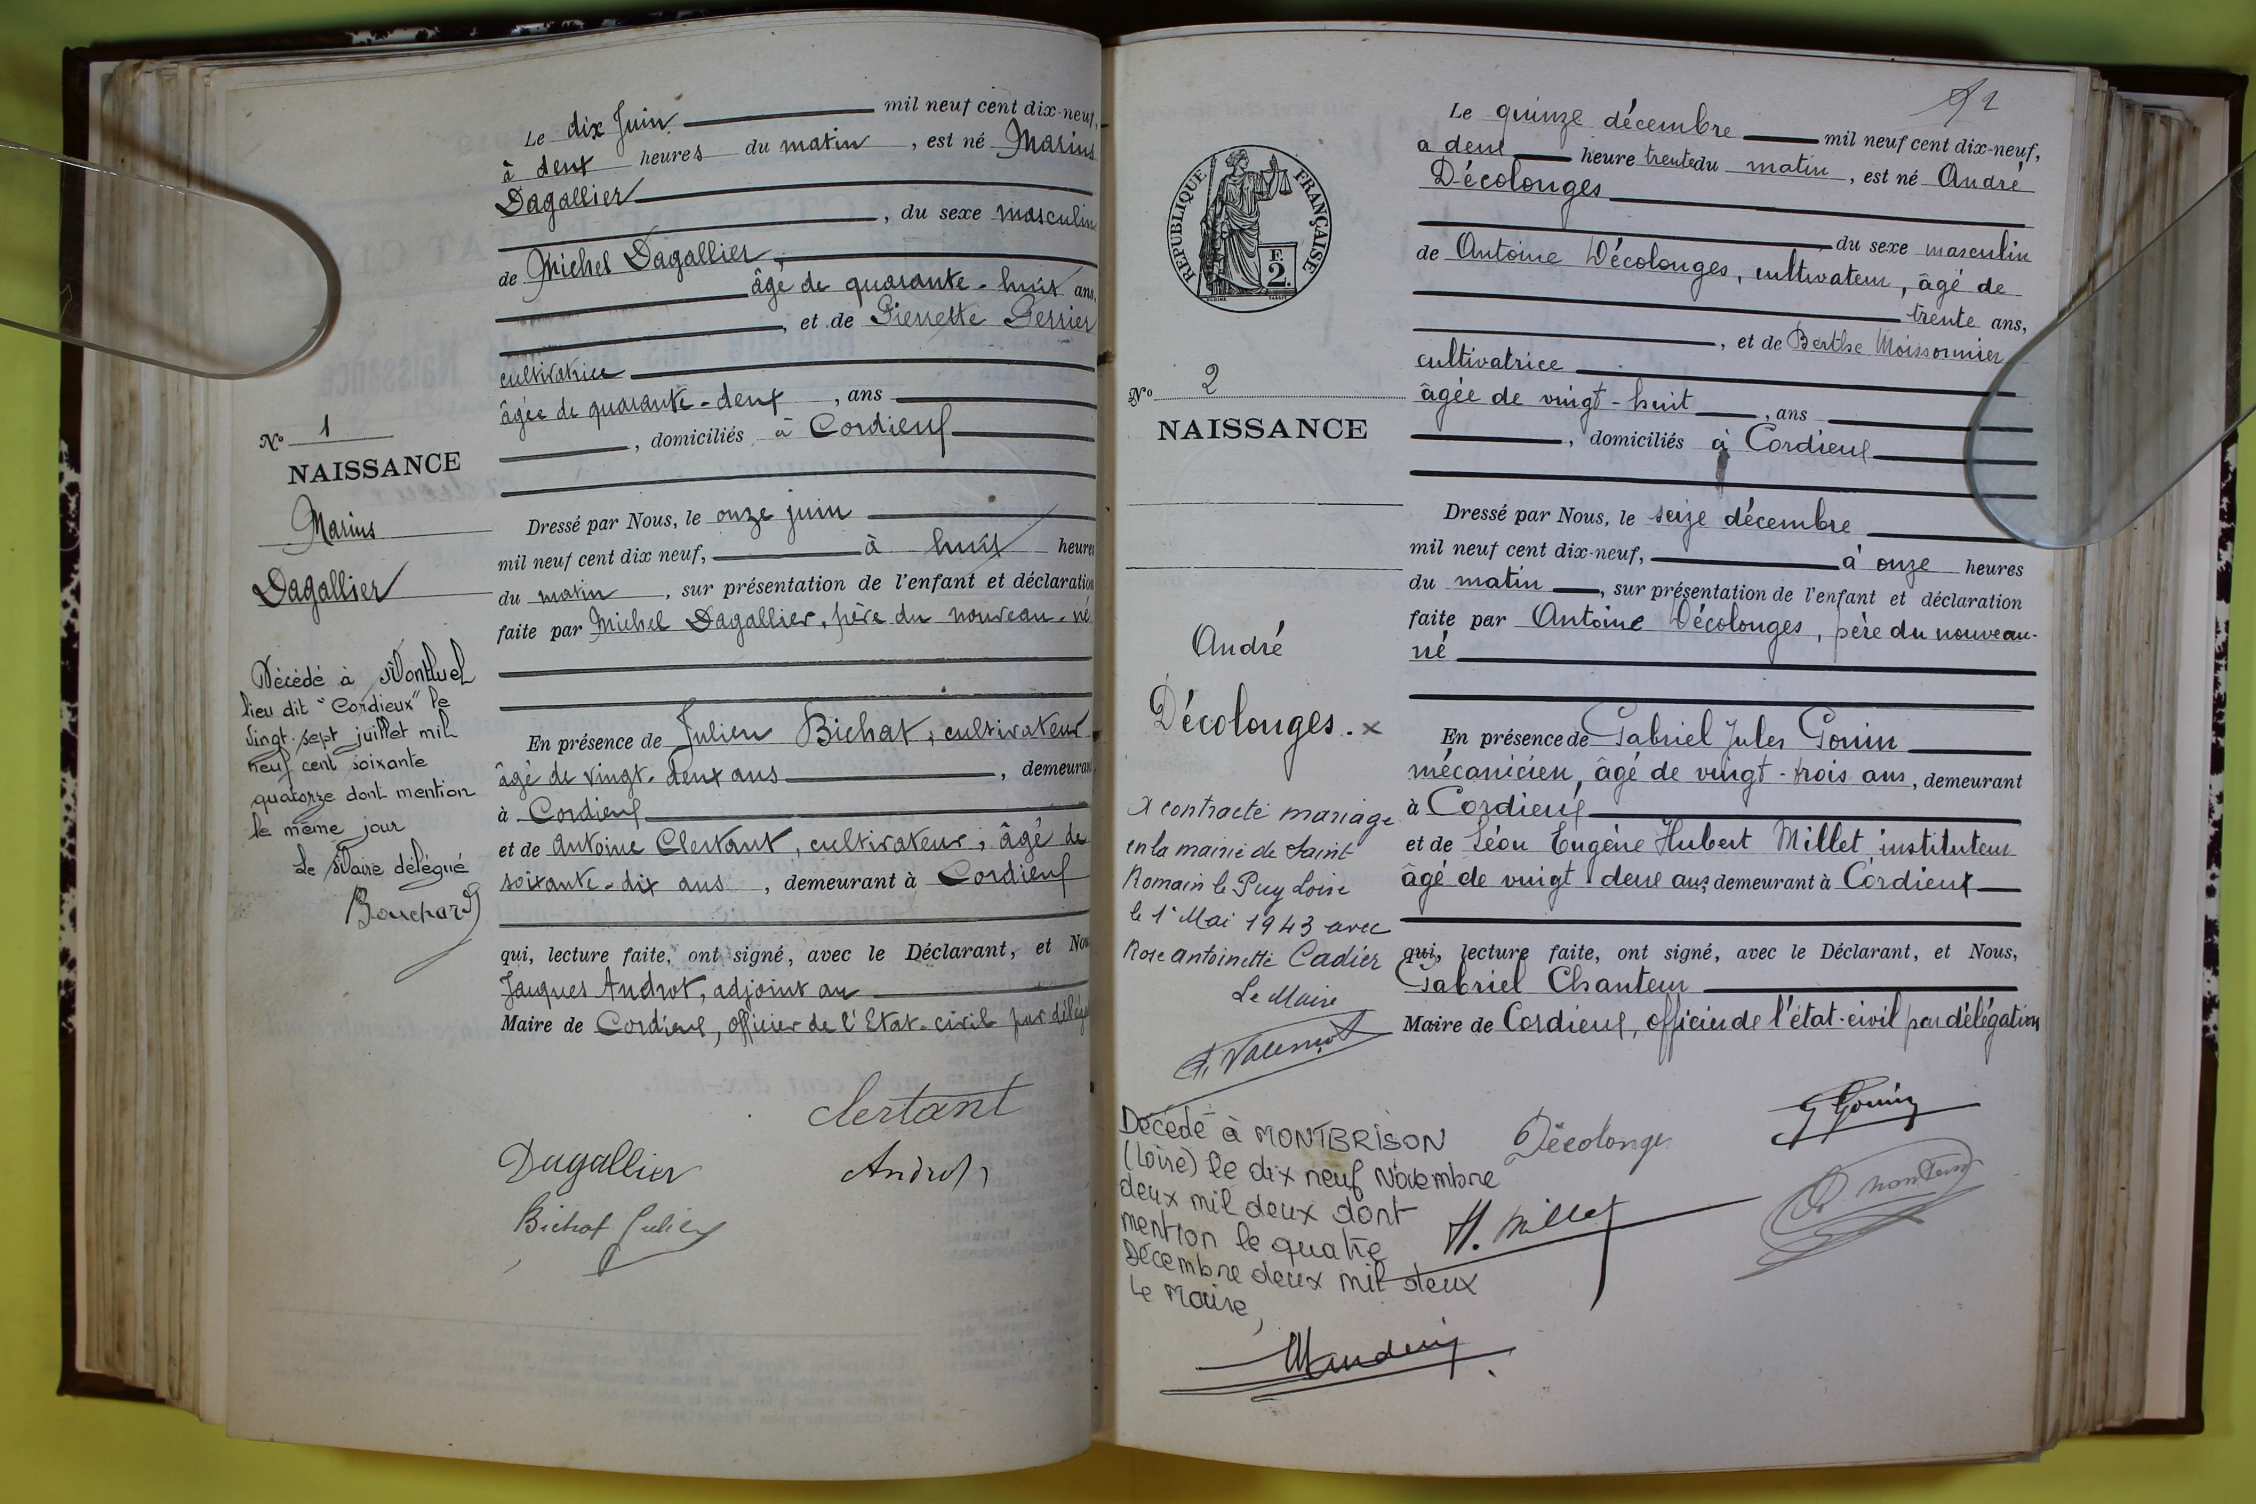 Le dix Juin mil neuf cent dix-neuf,
à deux heures du matin, est né Marius
Dagallier
, du sexe masculin
de Michel Dagallier,
âgé de quarante-huit ans,
, et de Pierrette Perrier
cultivatrice
âgée de quarante-deux, ans
, domiciliés à Cordieux
Nº 1
NAISSANCE
Marius
Dagallier
Dressé par Nous, le onze juin
mil neuf cent dix neuf, à huit heures
du matin, sur présentation de l'enfant et déclaration
faite par Michel Dagallier, père du nouveau-né
En présence de Julien Bichat, cultivateur
âgé de vingt-deux ans, demeurant
à Cordieux
et de Antoine Clertant, cultivateur, âgé de
soixante-dix ans, demeurant à Cordieux
qui, lecture faite, ont signé, avec le Déclarant, et Nous
Jacques Androt, adjoint au
Maire de Cordieux, officier de l'Etat-civil par délég
Décédé à Montluel
lieu dit "Cordieux" le
vingt-sept juillet mil
neuf cent soixante
quatorze dont mention
le même jour
Le Maire délégué
Bouchard
Clertant
Dagallier
Androt
Bichat Julien
52
REPUBLIQUE FRANÇAISE
F.
2.
Le quinze décembre mil neuf cent dix-neuf,
a deux heure trente du matin, est né André
Décolonges
du sexe masculin
de Antoine Décolonges, cultivateur, âgé de
trente ans,
, et de Berthe Moissonnier
cultivatrice
âgée de vingt-huit, ans
, domiciliés à Cordieux
Nº 2
NAISSANCE
André
Décolonges. x
Dressé par Nous, le seize décembre
mil neuf cent dix-neuf, à onze heures
du matin, sur présentation de l'enfant et déclaration
faite par Antoine Décolonges, père du nouveau-
né
En présence de Gabriel Jules Gonin
mécanicien, âgé de vingt-trois ans, demeurant
à Cordieux
et de Léon Eugène Hubert Millet, instituteur
âgé de vingt-deux ans, demeurant à Cordieux
qui, lecture faite, ont signé, avec le Déclarant, et Nous,
Gabriel Chanteur
Maire de Cordieux, officier de l'état-civil par délégation
x contracté mariage
en la mairie de Saint
Romain le Puy Loire
le 1er Mai 1943 avec
Rose Antoinette Cadier
Le Maire
Décédé à MONTBRISON
(Loire) le dix neuf Novembre
deux mil deux dont
mention le quatre
Décembre deux mil deux
Le Maire,
Décolonge
G Gonin
H. Millet